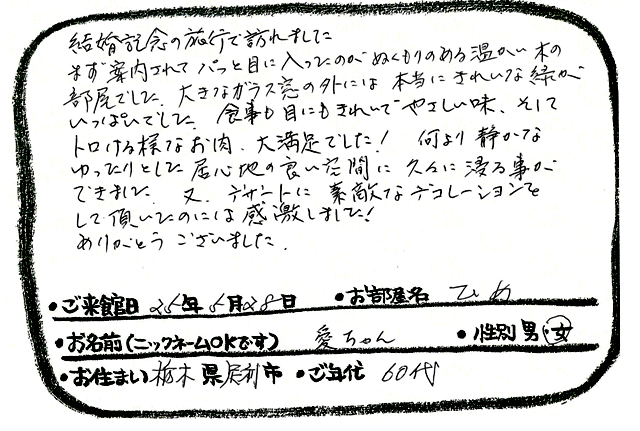 結婚記念の旅行で訪れました
まず案内されてパっと目に入ったのがぬくもりのある温かい木の
部屋でした。大きなガラス窓の外には本当にきれいな緑が
いっぱいでした。食事も目にもきれいでやさしい味、そして
トロける様なお肉、大満足でした！ 何より静かな
ゆったりとした居心地の良い空間に久々に浸る事が
できました。又、デザートに素敵なデコレーションを
して頂いたのには感激しました！
ありがとうございました。
・ご来館日 25年5月28日 ・お部屋名 ひめ
・お名前(ニックネームOKです) 愛ちゃん ・性別 男・女
・お住まい 栃木県足利市 ・ご年代 60代